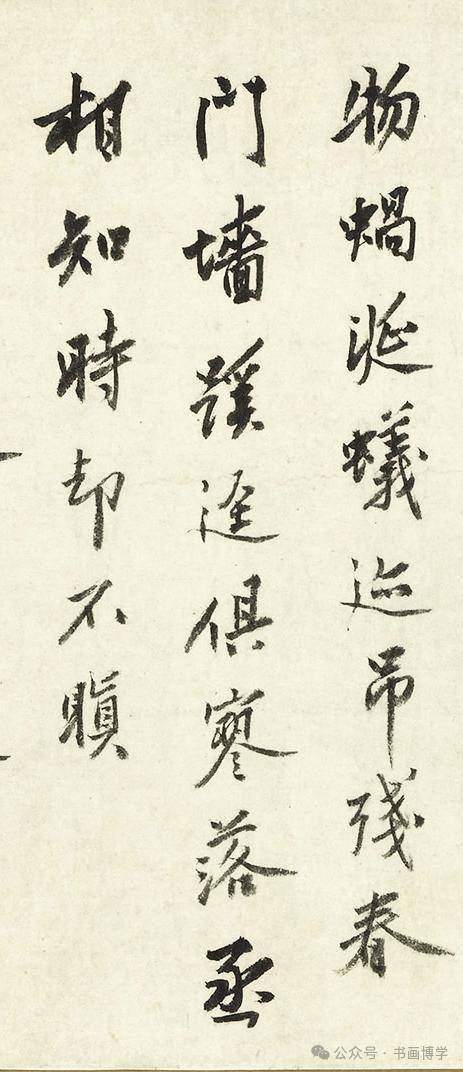 物蝸涎蟻迹吊殘春
門墻蹊逕俱寥落丞
相知時却不瞋
公众号 · 书画博学